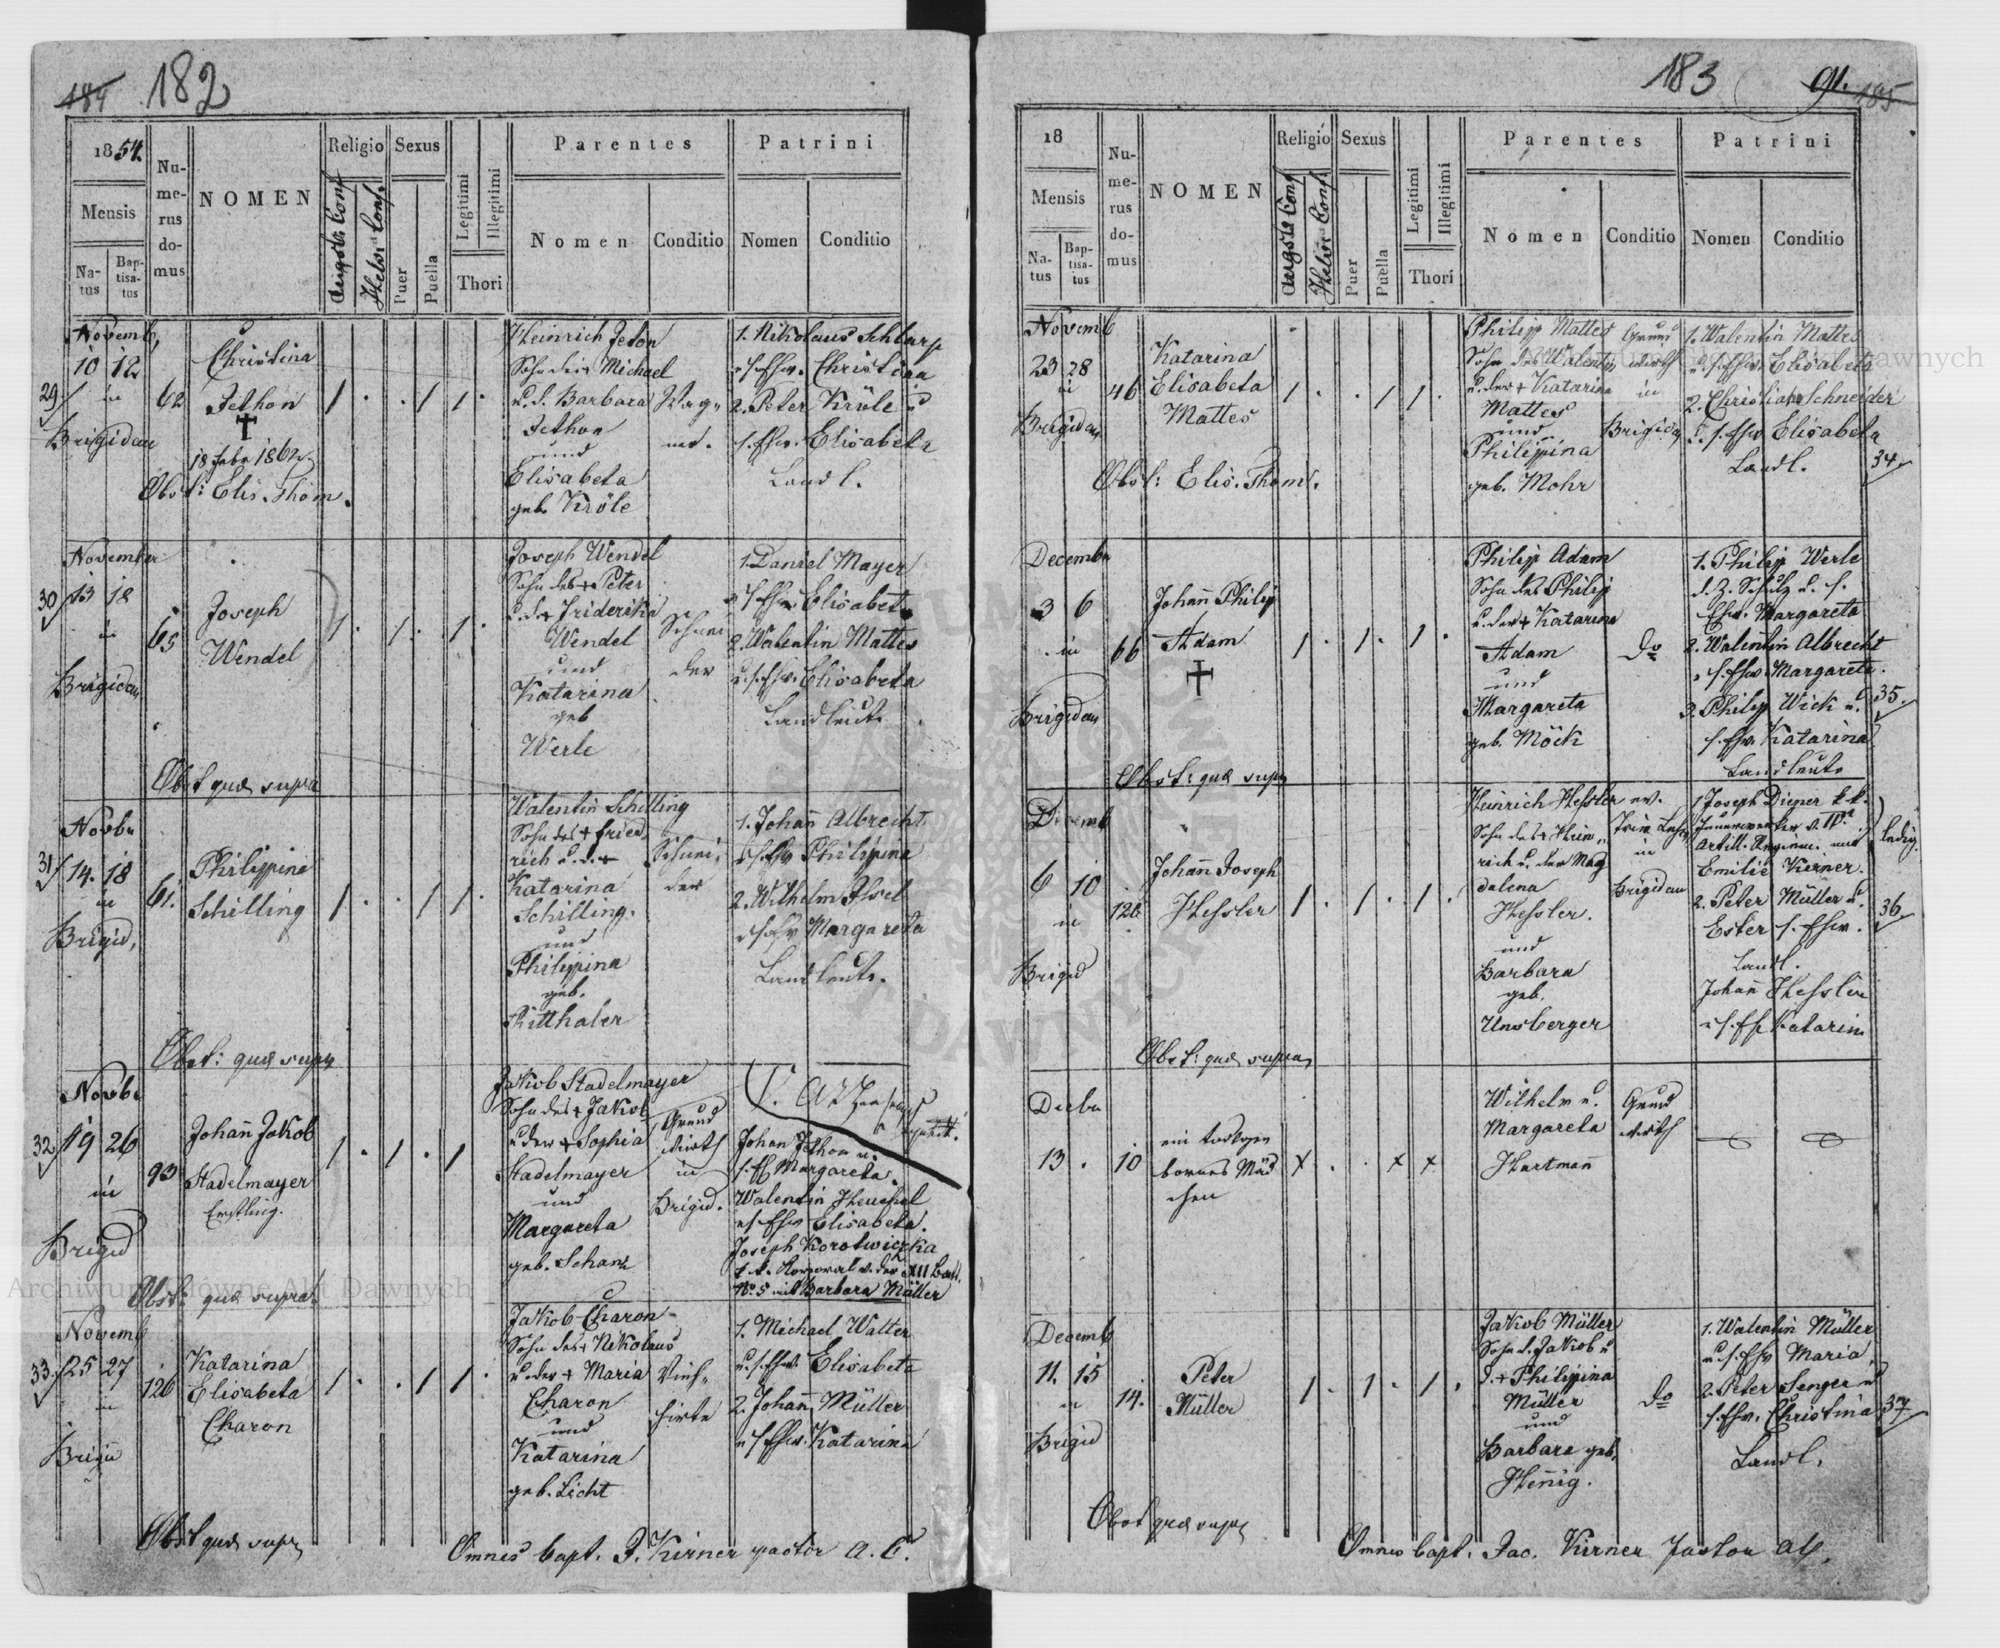 184 182
1854.
Mensis
Natus
Baptisatus
Numerus domus
NOMEN
Religio
August: Conf.
Helv: Conf.
Sexus
Puer
Puella
Legitimi
Illegitimi
Thori
Parentes
Nomen
Conditio
Patrini
Nomen
Conditio
29.
Novemb.
10 12
in
Brigidau
62
Christina
Jethon
†
18 Febr 1862
Obst: Elis. Thom.
Heinrich Jeton
Sohn des Michael
u. d. Barbara
Jethon
und
Elisabeta
geb. Kröle
Wag-
ner.
1. Nikolaus Schlarp
u s. Ehw. Christina
2. Peter Kröle u
s. Ehw. Elisabeta
Landl.
30
November
13 18
in
Brigidau
65
Joseph
Wendel
Obst quae supra
Joseph Wendel
Sohn des + Peter
u. d. + Friderika
Wendel
und
Katarina
geb
Werle
Schnei
der
1. Daniel Mayer
u s Ehw Elisabeta
2. Walentin Mattes
u. s. Ehw. Elisabeta
Landleute
31
Novbr
14. 18
in
Brigid,
61.
Philippine
Schilling
Obst: quae supra
Walentin Schilling
Sohn des + Fried
rich u. d. +
Katarina
Schilling.
und
Philippina
geb.
Ritthaler
Schnei,
der
1. Johañ Albrecht
u s. Ehw Philippina
2. Wilhelm
u s Ehw Margareta
Landleute.
32
Novbr
19 26
in
Brigid
93
Johañ Jakob
Stadelmayer
Erstling.
Obst: quae supra.
Jakob Stadelmayer
Sohn des + Jakob
u der + Sophia
Stadelmayer
und
Margareta
geb. Schanz
Grund
wirth
in
Brigid.
Johan Jethon u.
s. E Margareta.
Walentin Heuchel
u s. Ehw Elisabeta.
Joseph Korotwiczka
k. k. Korporal v. der XII Comp.
No 5 mit Barbara Müller
33.
Novemb
25 27
in
Brigid
126
Katarina
Elisabeta
Charon
Obst quae supra
Jakob Charon
Sohn des + Nikolaus
u. der + Maria
Charon
und
Katarina
geb. Licht
Vieh-
hirte
1. Michael Walter
u. s. Ehw. Elisabeta
2. Johañ Müller
u s Ehw. Katarina
Omnes bapt. J. Kirner pastor A. C.
183 91. 185
18
Mensis
Natus
Baptisatus
Numerus domus
NOMEN
Religio
August: Conf
Helv: Conf.
Sexus
Puer
Puella
Legitimi
Illegitimi
Thori
Parentes
Nomen
Conditio
Patrini
Nomen
Conditio
Novemb
23 28
in
Brigidau
46
Katarina
Elisabeta
Mattes
Obst: Elis. Thom.
Philip Mattes
Sohn des Walentin
u. der + Katarina
Mattes
und
Philippina
geb. Mohr
Grund
wirth
in
Brigidau
1. Walentin Mattes
u. s. Ehw. Elisabeta
2. Christian Schneider
u. s. Ehw Elisabeta
Landl.
34
Decembr
3 6
in
Brigidau
66
Johañ Philip
Adam
†
Obst: quae supra
Philip Adam
Sohn des Philip
u. der + Katarina
Adam
und
Margareta
geb. Möck
do
1. Philip Werle
d. Z. Schulz u. s.
Ehw. Margareta
2. Walentin Albrecht
u s. Ehw Margareta.
3. Philip Wick u.
s. Ehw. Katarina
Landleute
35.
Decemb
6 10
in
Brigid
126
Johañ Joseph
Hessler
Obst: quae supra,
Heinrich Hessler ev.
Sohn des + Hein
rich u. der Mag
dalena
Hessler.
und
Barbara
geb.
Unsberger
in
Brigidau
1 Joseph Dieper k. k.
Feuerwerker d. IV.
Artill. Regim. mit
Emilie Kirner.
ledig.
2. Peter Müller u.
Ester s. Ehw.
Landl.
Johañ Hessler
u s. Eh Katarin
36
Decbr
13 .
10
ein todtge
bornes Mäd
chen
Wilhelm u.
Margareta
Hartmañ
Grund
wirth
Decemb
11. 15
in
Brigid
14.
Peter
Müller
Obst quae supra
Jakob Müller
Sohn d. Jakob u
d. + Philipina
Müller
und
Barbara geb,
Heñig.
do
1. Walentin Müller
u. s. Ehw Maria
2. Peter Senger u
s. Ehw. Christina
Landl.
37
Omnes bapt. Jac. Kirner Pastor AC.
Archiwum Główne Akt Dawnych